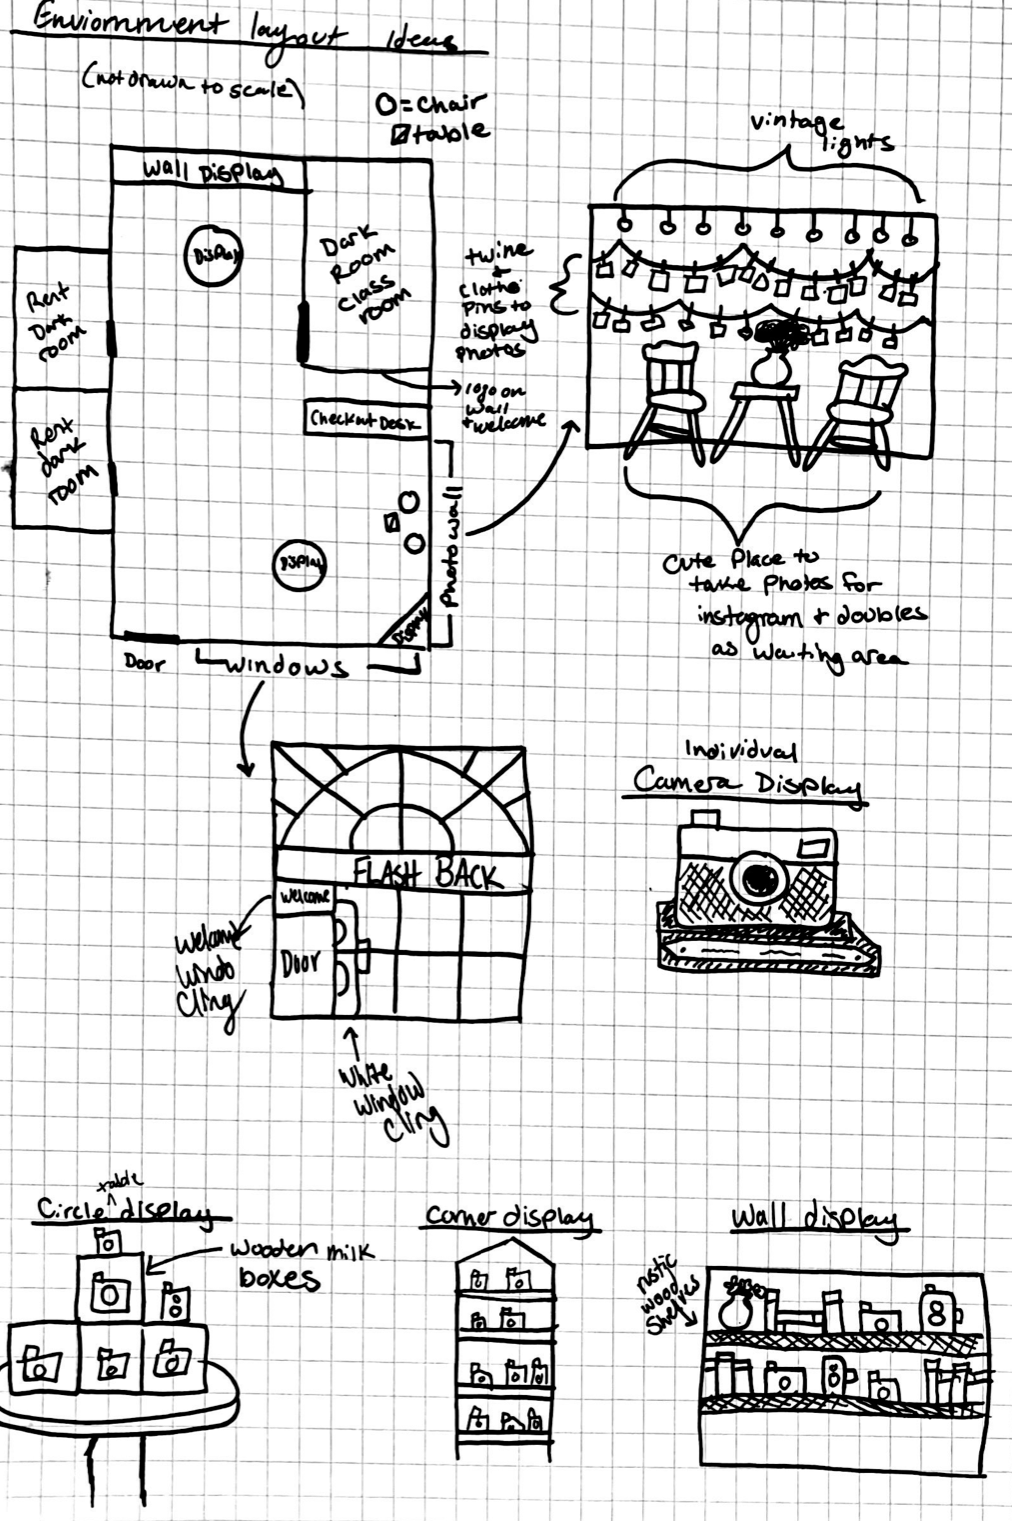 Enviornment layout Ideas
(not drawn to scale)
O=Chair
table
Wall Display
Display
Dark
Room
Class
room
Rent
Dark
room
Rent
dark
room
Checkout Desk
Display
Display
Door
Windows
Photo wall
twine
+
clothe
Pins to
display
photos
logo on
wall
+ welcome
vintage
lights
Cute Place to
take Photos for
instagram + doubles
as waiting area
FLASH BACK
Welcome
Door
Welcome
Windo
Cling
White
Window
Cling
Individual
Camera Display
Circle table display
wooden milk
boxes
Corner display
Wall display
rustic
wood
Shelves